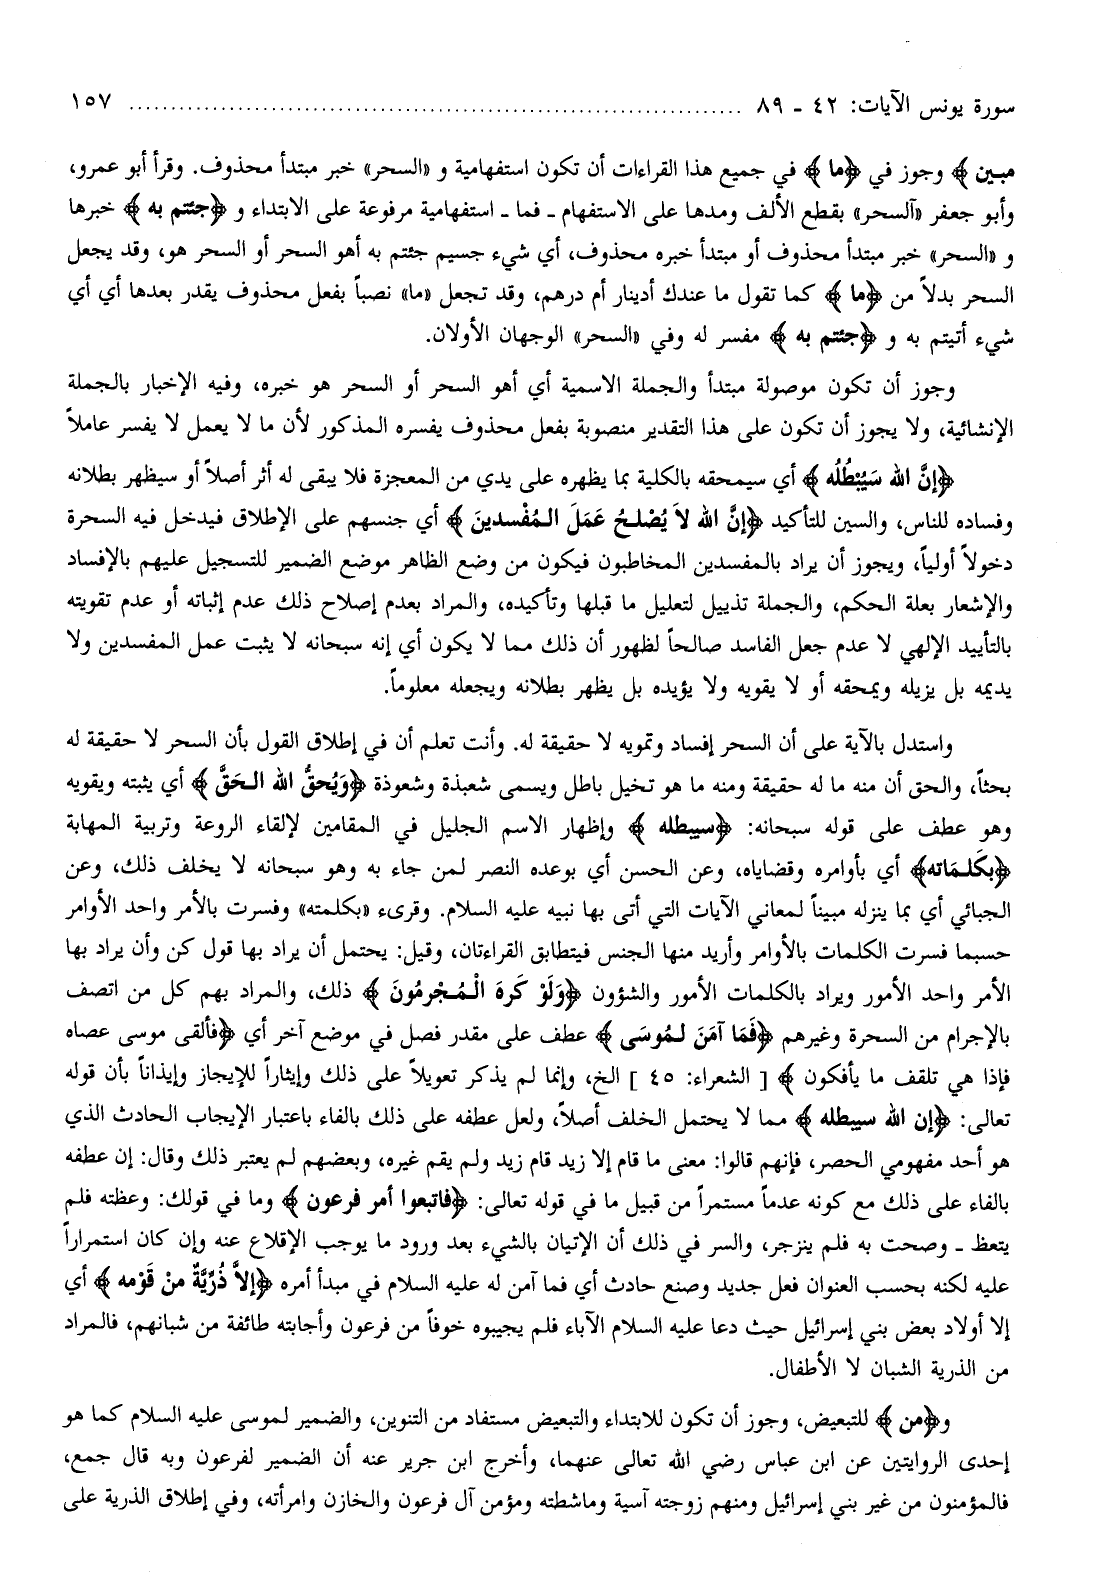 سورة يونس الآيات: ٤٢ ـ ٨٩ ........................................ ١٥٧
مبين﴾ وجوز في ﴿ما﴾ في جميع هذا القراءات أن تكون استفهامية و «السحر» خبر مبتدأ محذوف. وقرأ أبو عمرو،
وأبو جعفر «آلسحر» بقطع الألف ومدها على الاستفهام ـ فما ـ استفهامية مرفوعة على الابتداء و ﴿جئتم به﴾ خبرها
و «السحر» خبر مبتدأ محذوف أو مبتدأ خبره محذوف، أي شيء جسيم جئتم به أهو السحر أو السحر هو، وقد يجعل
السحر بدلاً من ﴿ما﴾ كما تقول ما عندك أدينار أم درهم، وقد تجعل «ما» نصباً بفعل محذوف يقدر بعدها أي أي
شيء أتيتم به و ﴿جئتم به﴾ مفسر له وفي «السحر» الوجهان الأولان.
وجوز أن تكون موصولة مبتدأ والجملة الاسمية أي أهو السحر أو السحر هو خبره، وفيه الإخبار بالجملة
الإنشائية، ولا يجوز أن تكون على هذا التقدير منصوبة بفعل محذوف يفسره المذكور لأن ما لا يعمل لا يفسر عاملاً
﴿إنَّ الله سَيُبْطُلُه﴾ أي سيمحقه بالكلية بما يظهره على يدي من المعجزة فلا يبقى له أثر أصلاً أو سيظهر بطلانه
وفساده للناس، والسين للتأكيد ﴿إنَّ الله لاَ يُصْلـحُ عَمَلَ الـمُفْسدينَ﴾ أي جنسهم على الإطلاق فيدخل فيه السحرة
دخولاً أولياً، ويجوز أن يراد بالمفسدين المخاطبون فيكون من وضع الظاهر موضع الضمير للتسجيل عليهم بالإفساد
والإشعار بعلة الحكم، والجملة تذييل لتعليل ما قبلها وتأكيده، والمراد بعدم إصلاح ذلك عدم إثباته أو عدم تقويته
بالتأييد الإلهي لا عدم جعل الفاسد صالحاً لظهور أن ذلك مما لا يكون أي إنه سبحانه لا يثبت عمل المفسدين ولا
يديمه بل يزيله ويمحقه أو لا يقويه ولا يؤيده بل يظهر بطلانه ويجعله معلوماً.
واستدل بالآية على أن السحر إفساد وتمويه لا حقيقة له. وأنت تعلم أن في إطلاق القول بأن السحر لا حقيقة له
بحثاً، والحق أن منه ما له حقيقة ومنه ما هو تخيل باطل ويسمى شعبذة وشعوذة ﴿وَيُحقُّ الله الـحَقَّ﴾ أي يثبته ويقويه
وهو عطف على قوله سبحانه: ﴿سيبطله﴾ وإظهار الاسم الجليل في المقامين لإلقاء الروعة وتربية المهابة
﴿بكَلـمَاته﴾ أي بأوامره وقضاياه، وعن الحسن أي بوعده النصر لمن جاء به وهو سبحانه لا يخلف ذلك، وعن
الجبائي أي بما ينزله مبيناً لمعاني الآيات التي أتى بها نبيه عليه السلام. وقرىء «بكلمته» وفسرت بالأمر واحد الأوامر
حسبما فسرت الكلمات بالأوامر وأريد منها الجنس فيتطابق القراءتان، وقيل: يحتمل أن يراد بها قول كن وأن يراد بها
الأمر واحد الأمور ويراد بالكلمات الأمور والشؤون ﴿وَلَوْ كَرهَ الْـمُجْرمُونَ﴾ ذلك، والمراد بهم كل من اتصف
بالإجرام من السحرة وغيرهم ﴿فَمَا آمَنَ لـمُوسَى﴾ عطف على مقدر فصل في موضع آخر أي ﴿فألقى موسى عصاه
فإذا هي تلقف ما يأفكون﴾ [الشعراء: ٤٥] الخ، وإنما لم يذكر تعويلاً على ذلك وإيثاراً للإيجاز وإيذاناً بأن قوله
تعالى: ﴿إن الله سيبطله﴾ مما لا يحتمل الخلف أصلاً، ولعل عطفه على ذلك بالفاء باعتبار الإيجاب الحادث الذي
هو أحد مفهومي الحصر، فإنهم قالوا: معنى ما قام إلا زيد قام زيد ولم يقم غيره، وبعضهم لم يعتبر ذلك وقال: إن عطفه
بالفاء على ذلك مع كونه عدماً مستمراً من قبيل ما في قوله تعالى: ﴿فاتبعوا أمر فرعون﴾ وما في قولك: وعظته فلم
يتعظ ـ وصحت به فلم ينزجر، والسر في ذلك أن الإتيان بالشيء بعد ورود ما يوجب الإقلاع عنه وإن كان استمراراً
عليه لكنه بحسب العنوان فعل جديد وصنع حادث أي فما آمن له عليه السلام في مبدأ أمره ﴿إلاَّ ذُرِّيَّةٌ منْ قَوْمه﴾ أي
إلا أولاد بعض بني إسرائيل حيث دعا عليه السلام الآباء فلم يجيبوه خوفاً من فرعون وأجابته طائفة من شبانهم، فالمراد
من الذرية الشبان لا الأطفال.
و﴿من﴾ للتبعيض، وجوز أن تكون للابتداء والتبعيض مستفاد من التنوين، والضمير لموسى عليه السلام كما هو
إحدى الروايتين عن ابن عباس رضي الله تعالى عنهما، وأخرج ابن جرير عنه أن الضمير لفرعون وبه قال جمع،
فالمؤمنون من غير بني إسرائيل ومنهم زوجته آسية وماشطته ومؤمن آل فرعون والخازن وامرأته، وفي إطلاق الذرية على